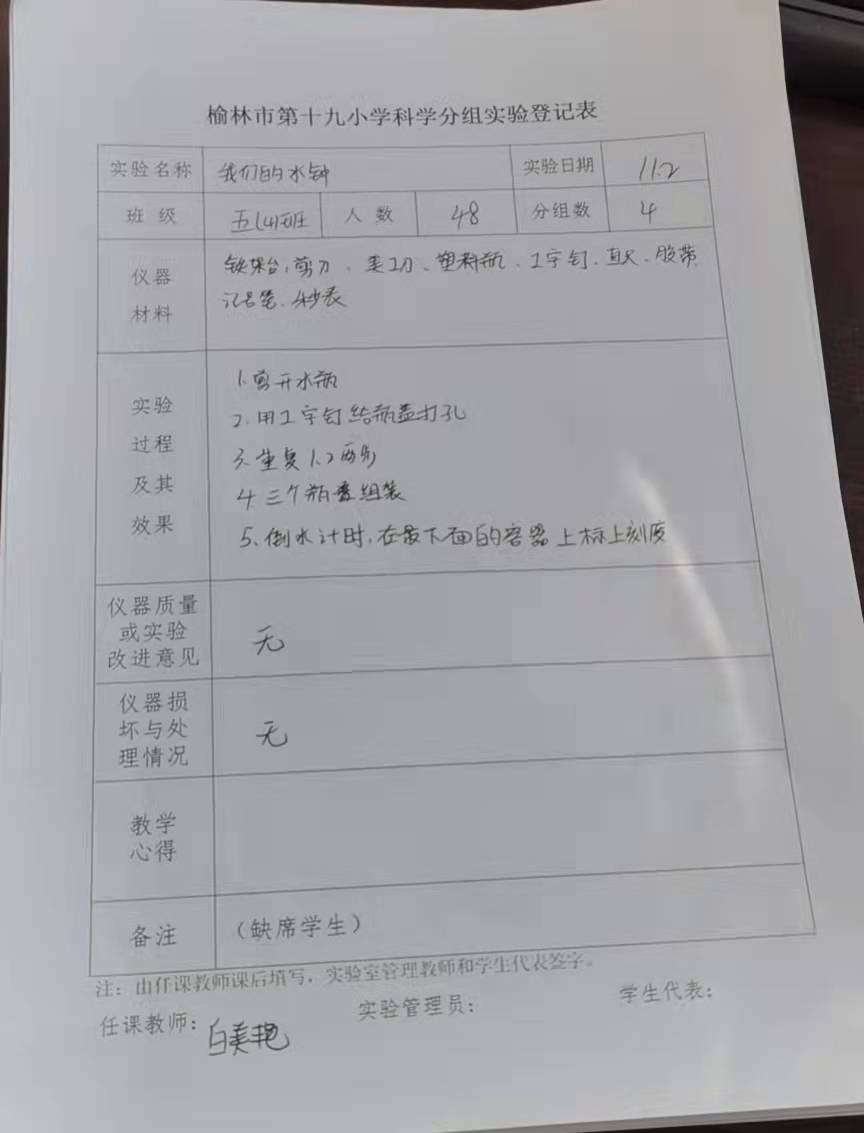 榆林市第十九小学科学分组实验登记表
实验名称 我们的水钟 实验日期 11.2
班 级 五(4)班 人 数 48 分组数 4
仪器 铁架台、剪刀、美工刀、塑料瓶、工字钉、直尺、胶带
材料 记号笔、秒表
实验 1.剪开水瓶
过程 2.用工字钉给瓶盖打孔
及其 3.重复1.2两步
效果 4 三个瓶叠组装
5、倒水计时,在最下面的容器上标上刻度
仪器质量
或实验 无
改进意见
仪器损
坏与处 无
理情况
教学
心得
备注 (缺席学生)
注:由任课教师课后填写,实验室管理教师和学生代表签字。
任课教师:白美艳 实验管理员: 学生代表: